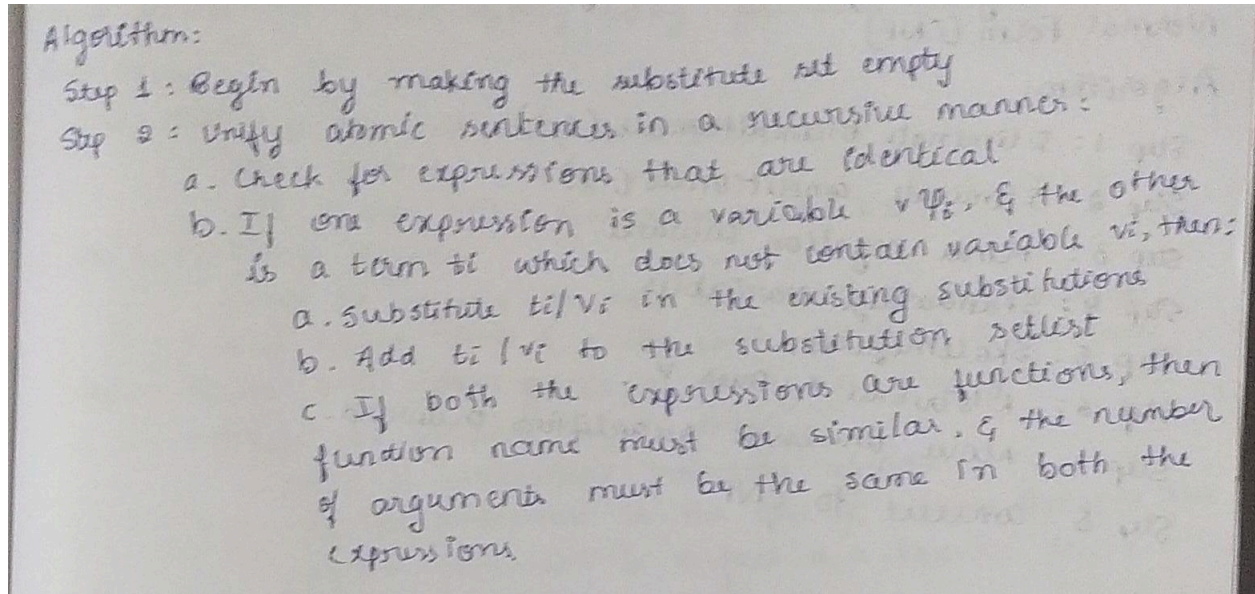 Algorithm:
Step 1 : Begin by making the substitute set empty
Step 2 : Unify atomic sentences in a recursive manner :
a. Check for expressions that are identical
b. If one expression is a variable v ψi, & the other
is a term ti which does not contain variable vi, then:
a. Substitute ti/vi in the existing substitutions
b. Add ti/vi to the substitution setlist
c If both the expressions are functions, then
function name must be similar, & the number
of arguments must be the same in both the
expressions.